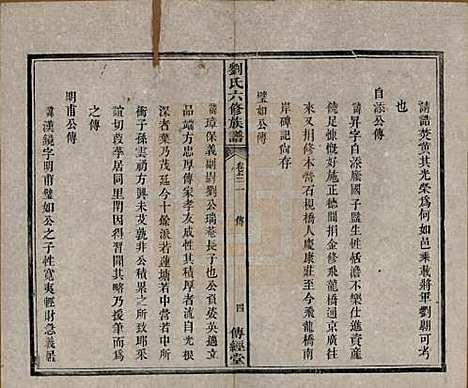 請誥焚黃其光榮爲何如邑乘敕將軍劉朝可考
也
自添公傳
諱昇字自添廕國子監生性恬澹不樂仕進資產
德足慷慨好施正德間捐金修飛龍橋通京廣往
來又捐修本營石梘橋人慶康莊至今飛龍橋南
岸碑記尙存
璧如公傳
諱璋保義副尉劉公瑞菴長子也公負姿英邁立
品端方忠厚傳家孝友成性其積厚者流自光根
深者葉乃茂延今十餘派若蓮塘若中營若井前
衝子孫雲礽方興未艾孰非公積累之所致耶采
誼切葭莩居同里閈因得習聞其略乃援筆而爲
之傳
明甫公傳
諱漢鏡字明甫璧如公之子性寬夷輕財急義嚴
劉氏六修族譜
卷之二
傳
四
傳經堂